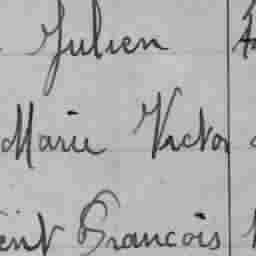 Julien
Marie Victor
ent François